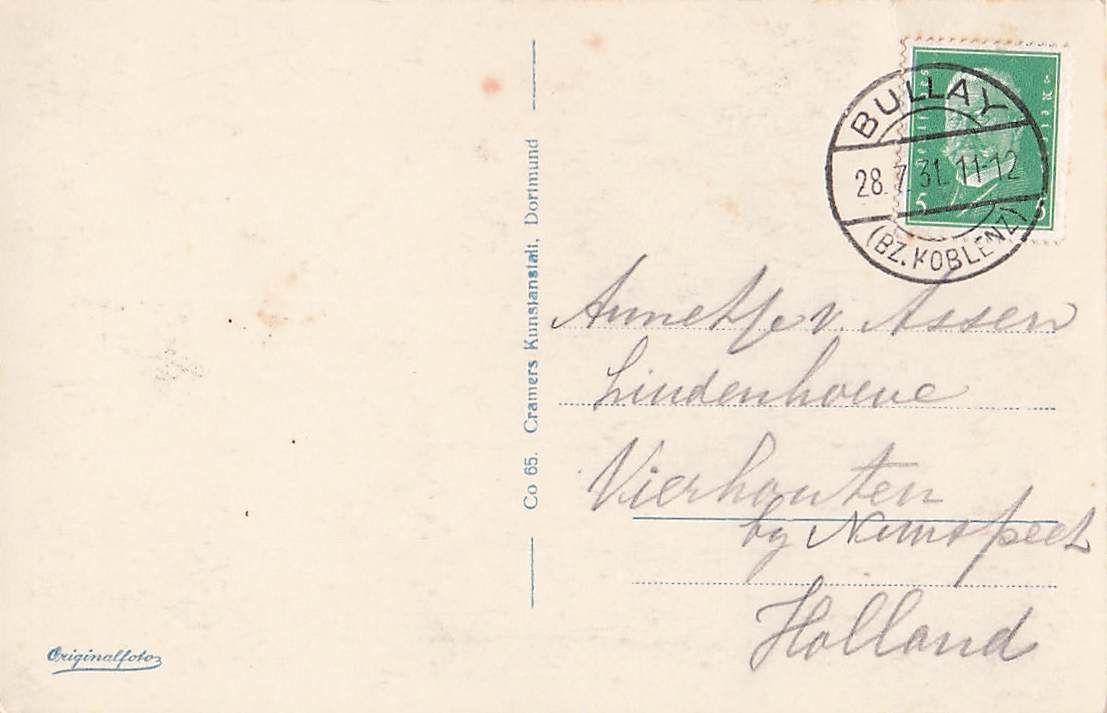 BULLAY
28.7.31. 11-12
(BZ. KOBLENZ)
5 5
Co 65. Cramers Kunstanstalt, Dortmund
Annetje v. Assen
Lindenhoeve
Vierhouten
by Nunspeet
Holland
Originalfoto